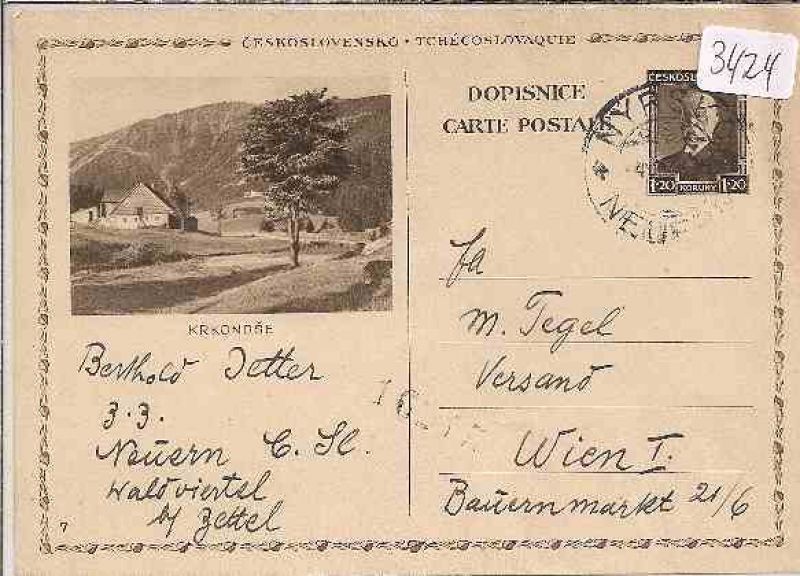 ČESKOSLOVENSKO • TCHÉCOSLOVAQUIE
3424
DOPISNICE
CARTE POSTALE
ČESKOSL
1·20 KORUNY 1·20
NÝR
NEU
KRKONOŠE
Berthold Jetter
z. Z.
Neuern Č. Sl.
Waldviertel
b/ Zettel
7
fa
M. Tegel
Versand
Wien I.
Bauernmarkt 21/6